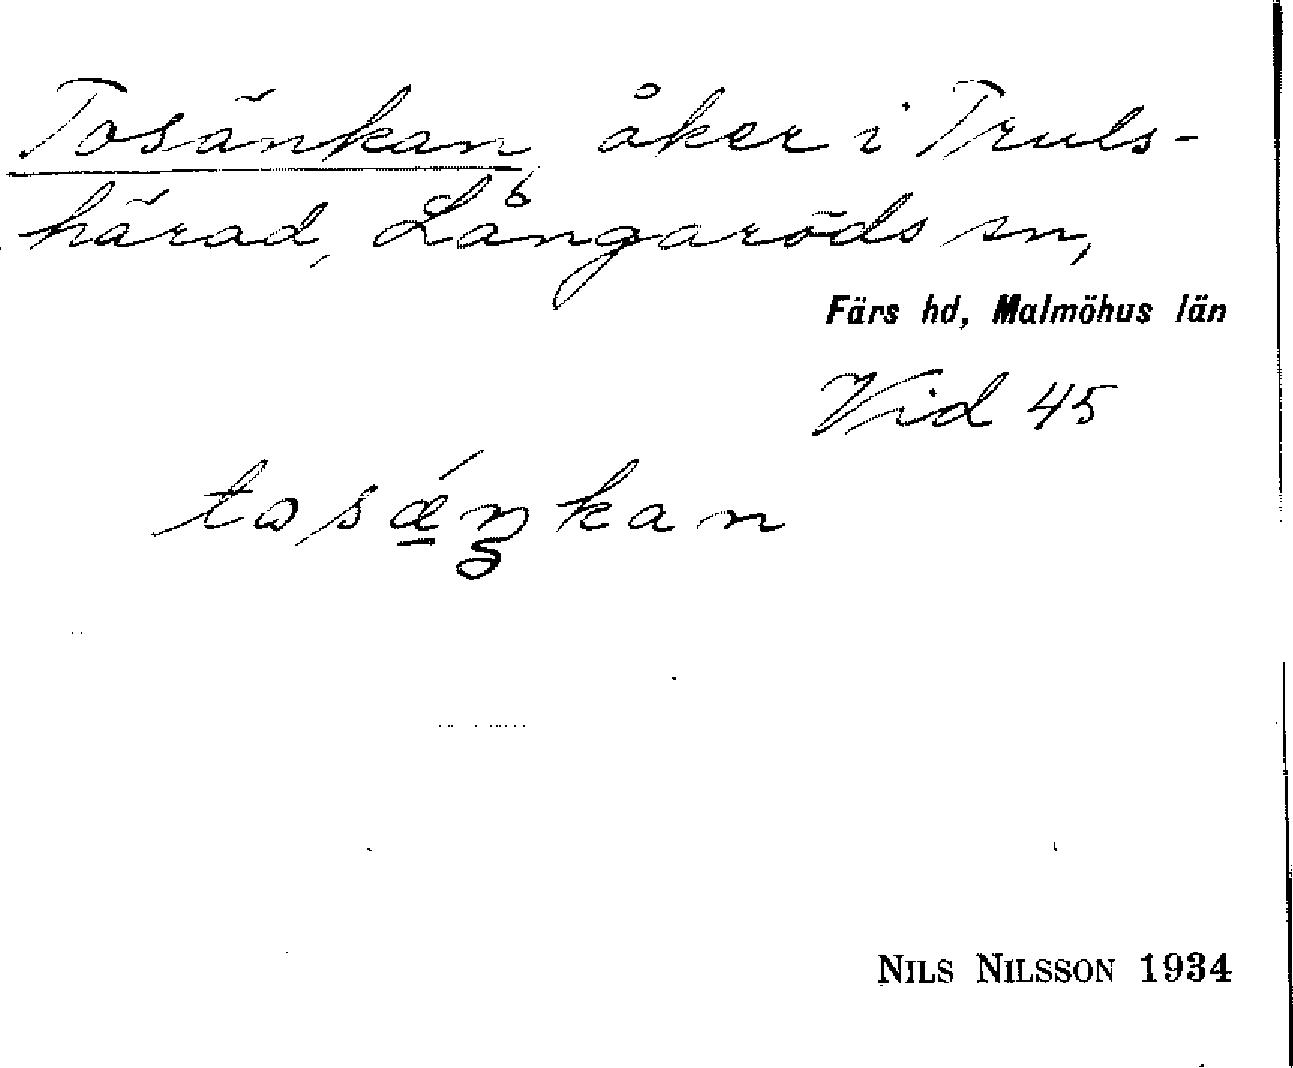 Tosänkan, åker i Truls-
härad, Långaröds sn,
Färs hd, Malmöhus län
Vid 45
tosǽŋkan
NILS NILSSON 1934